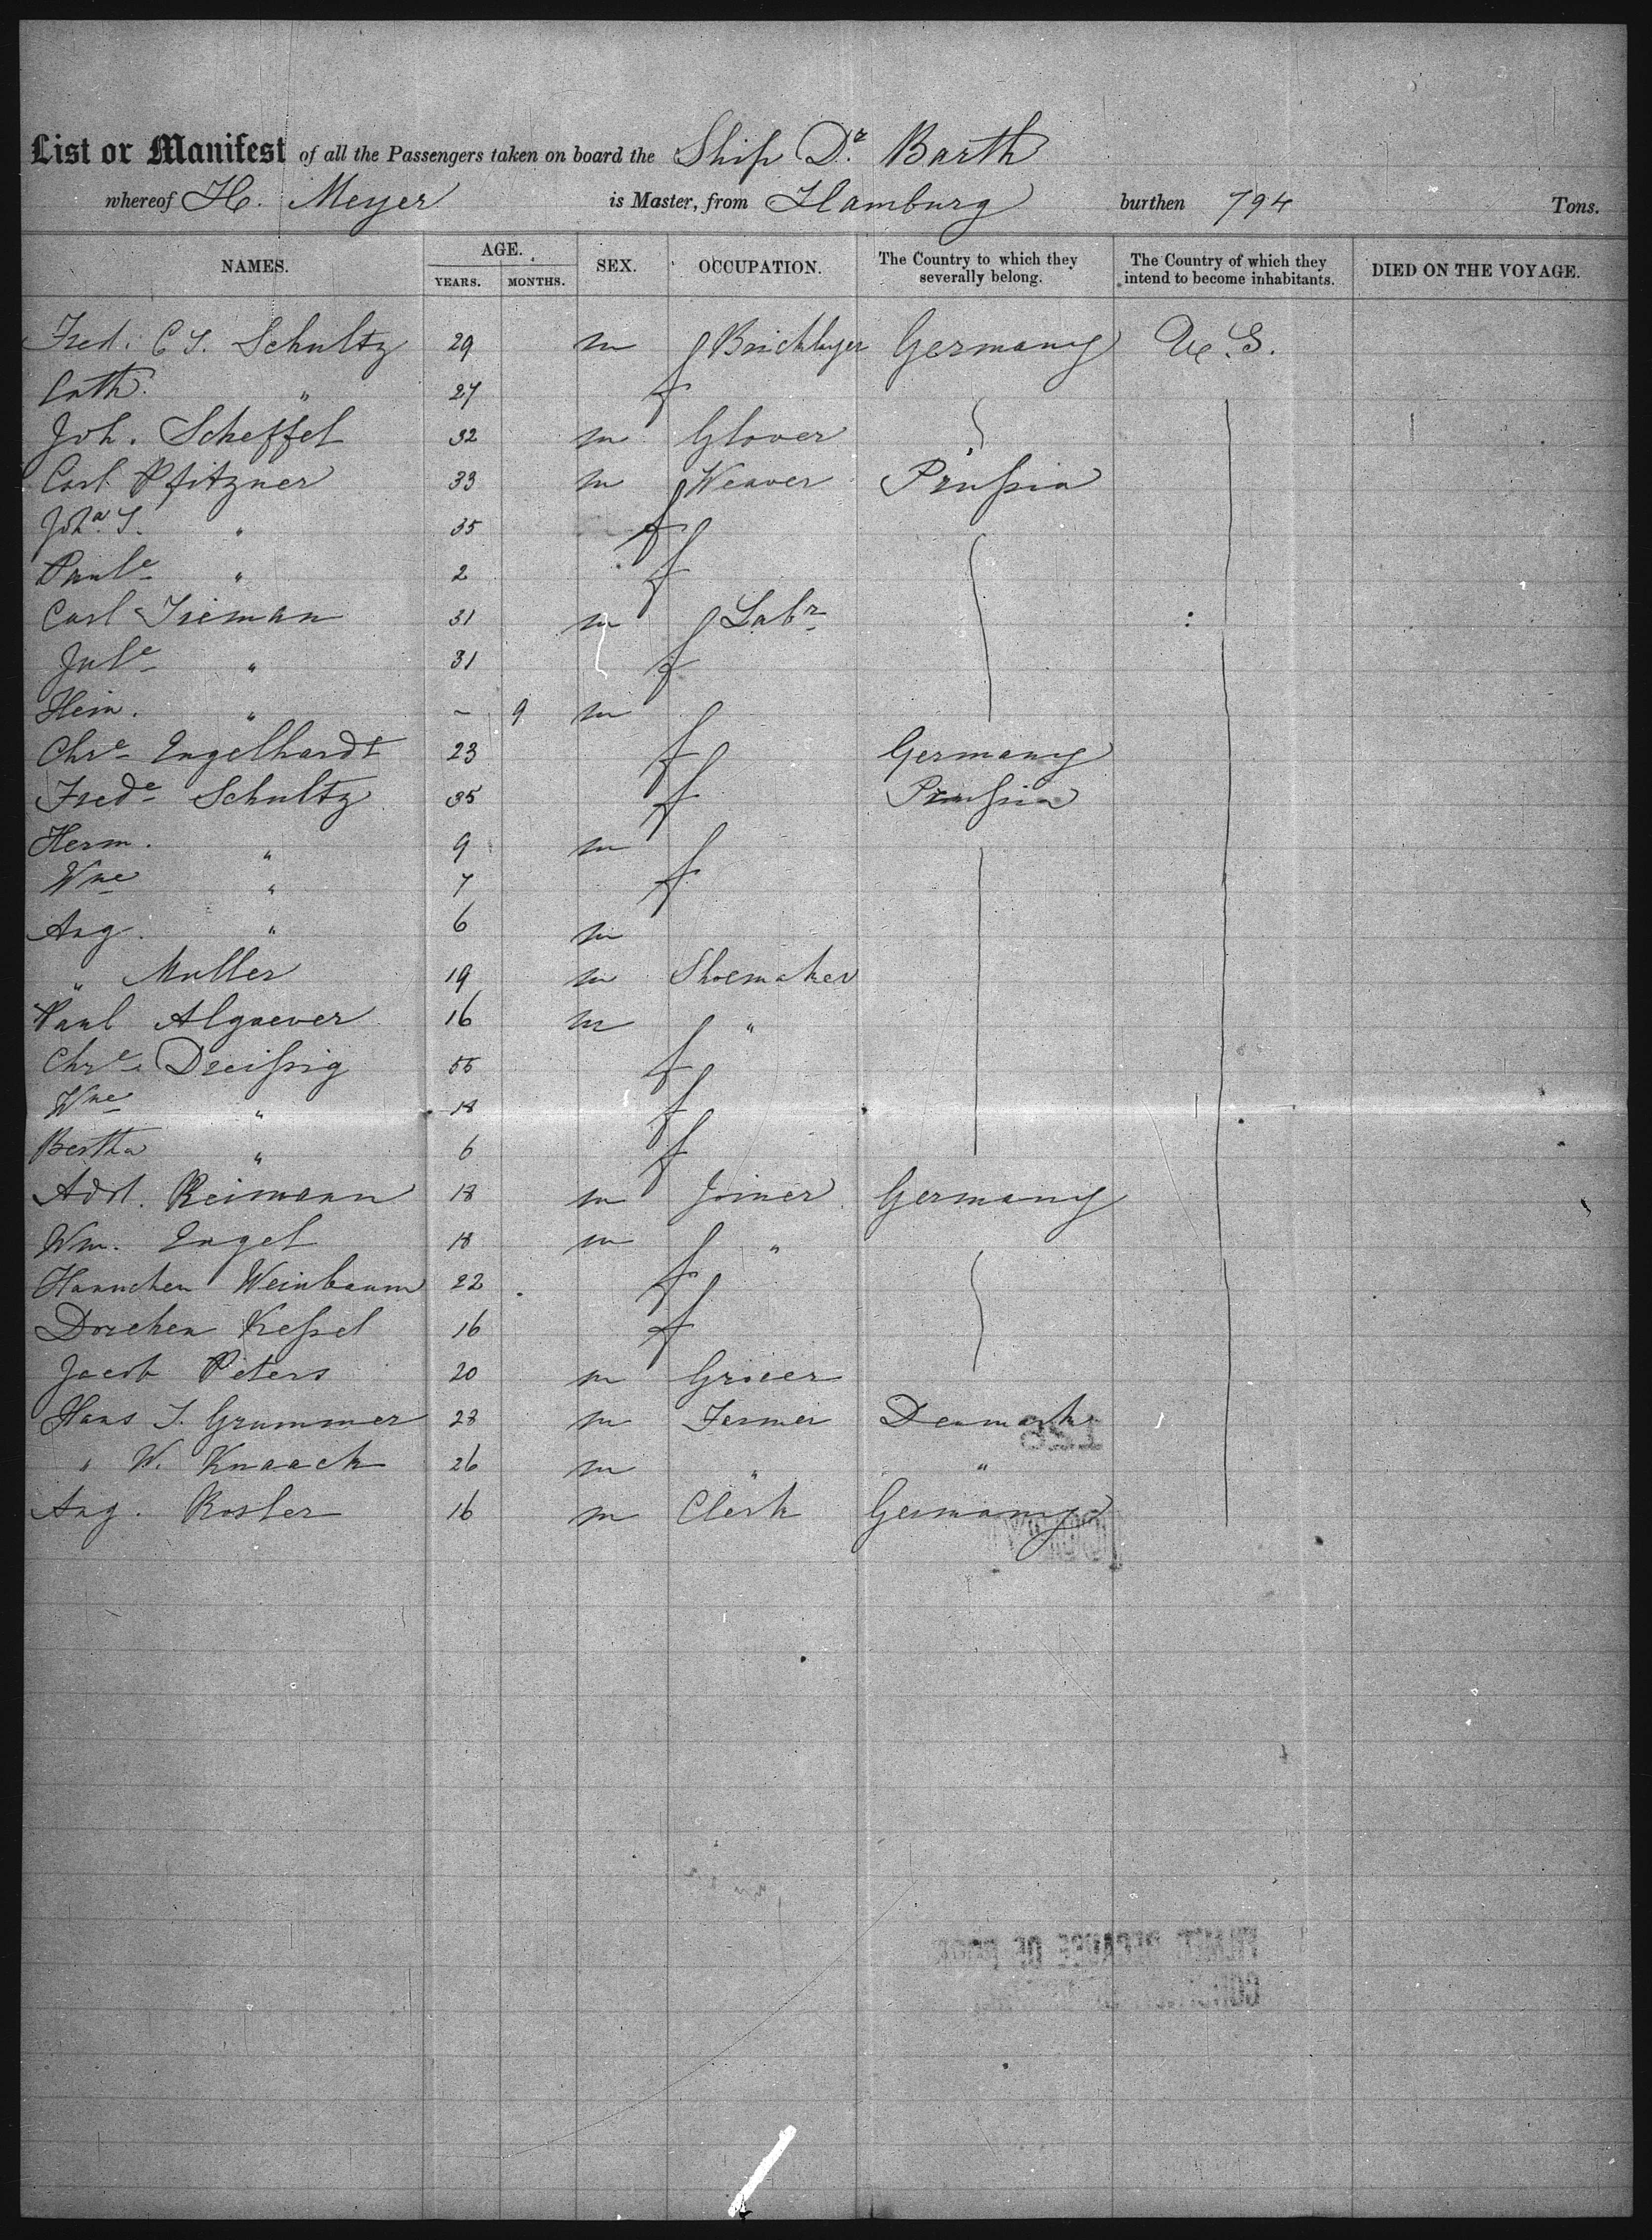 List or Manifest of all the Passengers taken on board the Ship Dr. Barth
whereof H. Meyer is Master, from Hamburg burthen 794 Tons.
NAMES. AGE. YEARS. MONTHS. SEX. OCCUPATION. The Country to which they severally belong. The Country of which they intend to become inhabitants. DIED ON THE VOYAGE.
Fred. C S. Schultz 29 m Bricklayer Germany U. S.
Cath. " 27 f
Joh. Scheffel 32 m Glover
Carl Pfitzner 33 m Weaver Prussia
Joha. S. " 35 f
Paule " 2 f
Carl Tieman 31 m Labr
Jule " 31 f
Hein. " - 9 m
Chre Engelhardt 23 f Germany
Frede Schultz 35 f Prussia
Herm. " 9 m
Wne " 7 f
Aug. " 6 m
" Muller 19 m Shoemaker
Paul Algaever 16 m "
Chre Dreissig 55 f
Wne " 18 f
Bertha " 6 f
Adol. Reimann 18 m Joiner Germany
Wm. Engel 18 m "
Hannchen Weinbaum 22 f
Dorchen Kessel 16 f
Jacob Peters 20 m Grocer
Hans J. Grummer 28 m Farmer Denmark
" W. Knaack 26 m " "
Aug. Rosler 16 m Clerk Germany